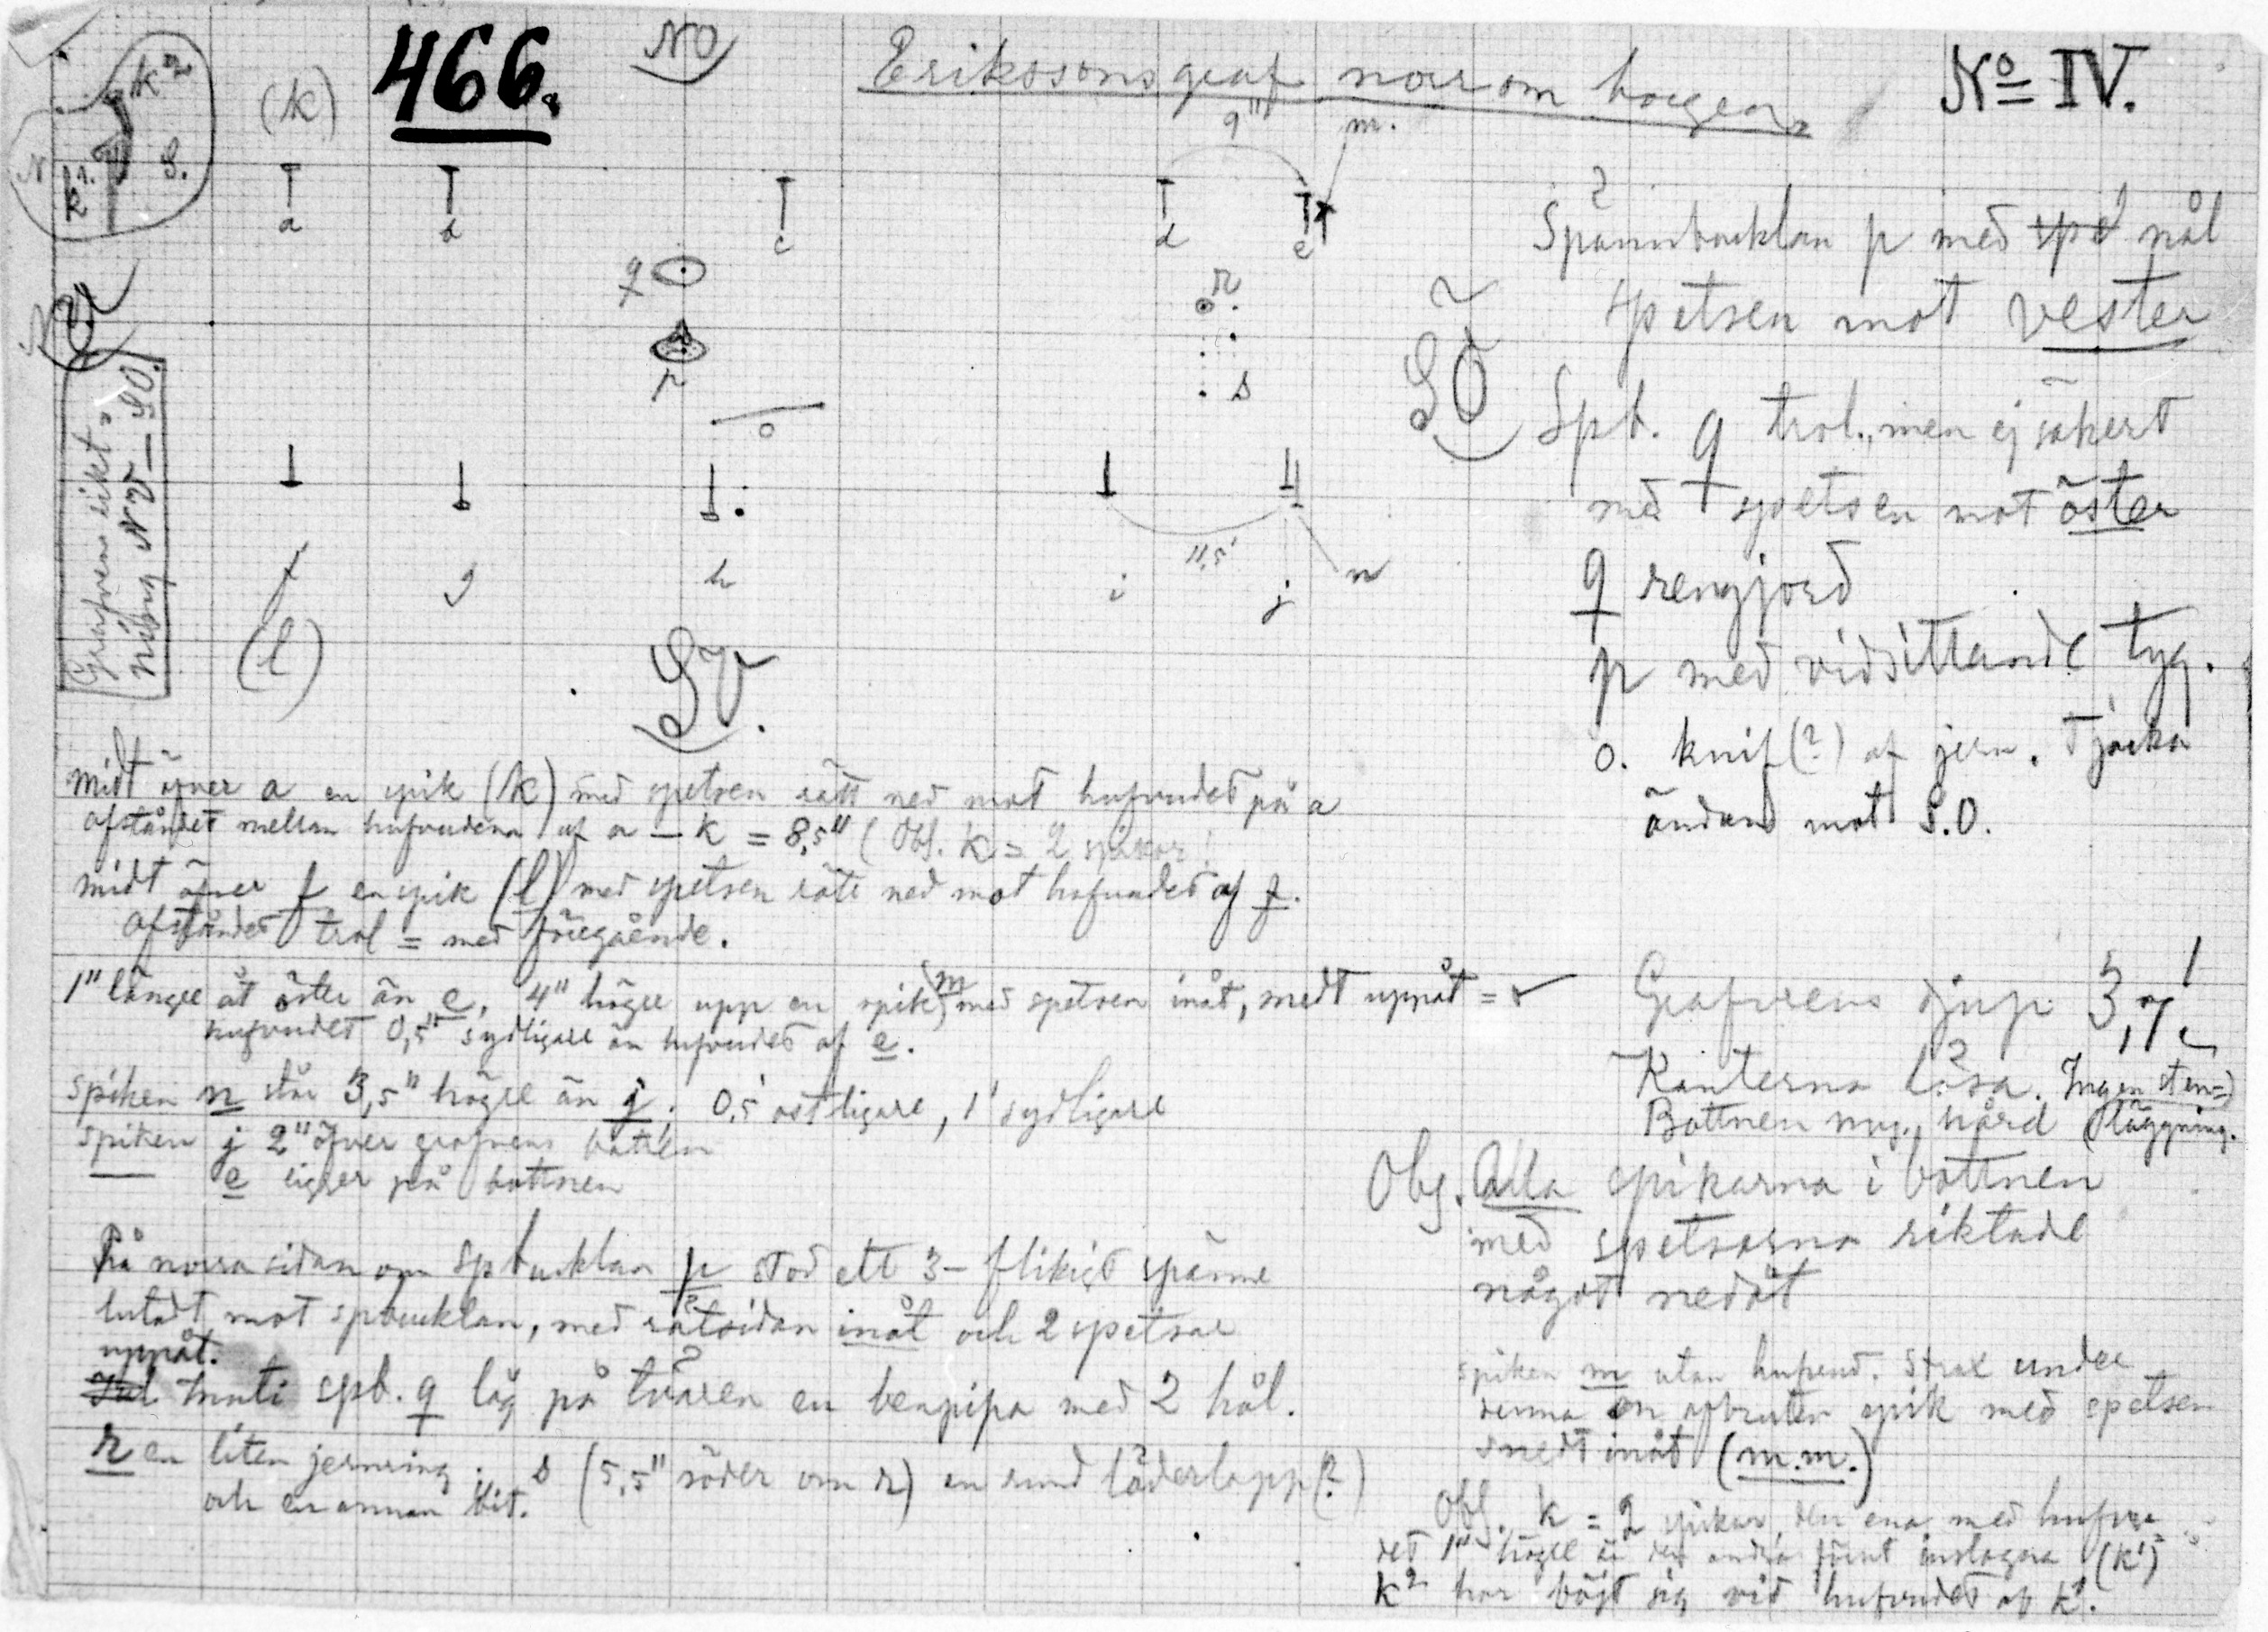 466.
NO
Erikssons graf norr om hagen
No IV.
k2
N
S.
k1.
(k)
9"
m.
a
b
c
d
e
q
r
p
s
o
SO
Grafvens rikt=
ning NV–SO.
11,5'
f
g
h
i
j
n
(l)
SV.
Spännbucklan p med nål
spetsen mot vester
Spb. q trol., men ej säkert
med spetsen mot öster
q rengjord
p med vidsittande tyg.
o. knif(?) af jern. Tjocka
ändan mot S.O.
midt öfver a en spik (k) med spetsen rätt ned mot hufvudet på a
afståndet mellan hufvudena af a – k = 8,5" (Obs. k = 2 spikar!
midt öfver f en spik (l) med spetsen rätt ned mot hufvudet af f.
Afståndet trol = med föregående.
1" längre åt öster än e, 4" högre upp en spik m med spetsen inåt, snedt uppåt =
hufvudet 0,5" sydligare än hufvudet af e.
spiken n står 3,5" högre än j, 0,5' ostligare, 1' sydligare
spiken j 2" öfver grafvens botten
e ligger på bottnen
Grafvens djup 3,7'
Kanterna lösa. Ingen sten=
Bottnen myc. hård läggning.
Obs. Alla spikarna i bottnen
med spetsarna riktade
något nedåt
På norra sidan om spbucklan p stod ett 3-flikigt spänne
lutadt mot spbucklan, med rätsidan inåt och 2 spetsar
uppåt.
Inuti spb. q låg på tvären en benpipa med 2 hål.
r en liten jernring. s (5,5" söder om r) en rund läderlapp(?)
och en annan bit.
spiken m utan hufvud. Strax under
denna en afbruten spik med spetsen
snedt inåt (m.m.)
Obs. k = 2 spikar, den ena med hufvu=
det 1" högre än den andra först inslagna (k1)
k2 har böjt sig vid hufvudet af k1.